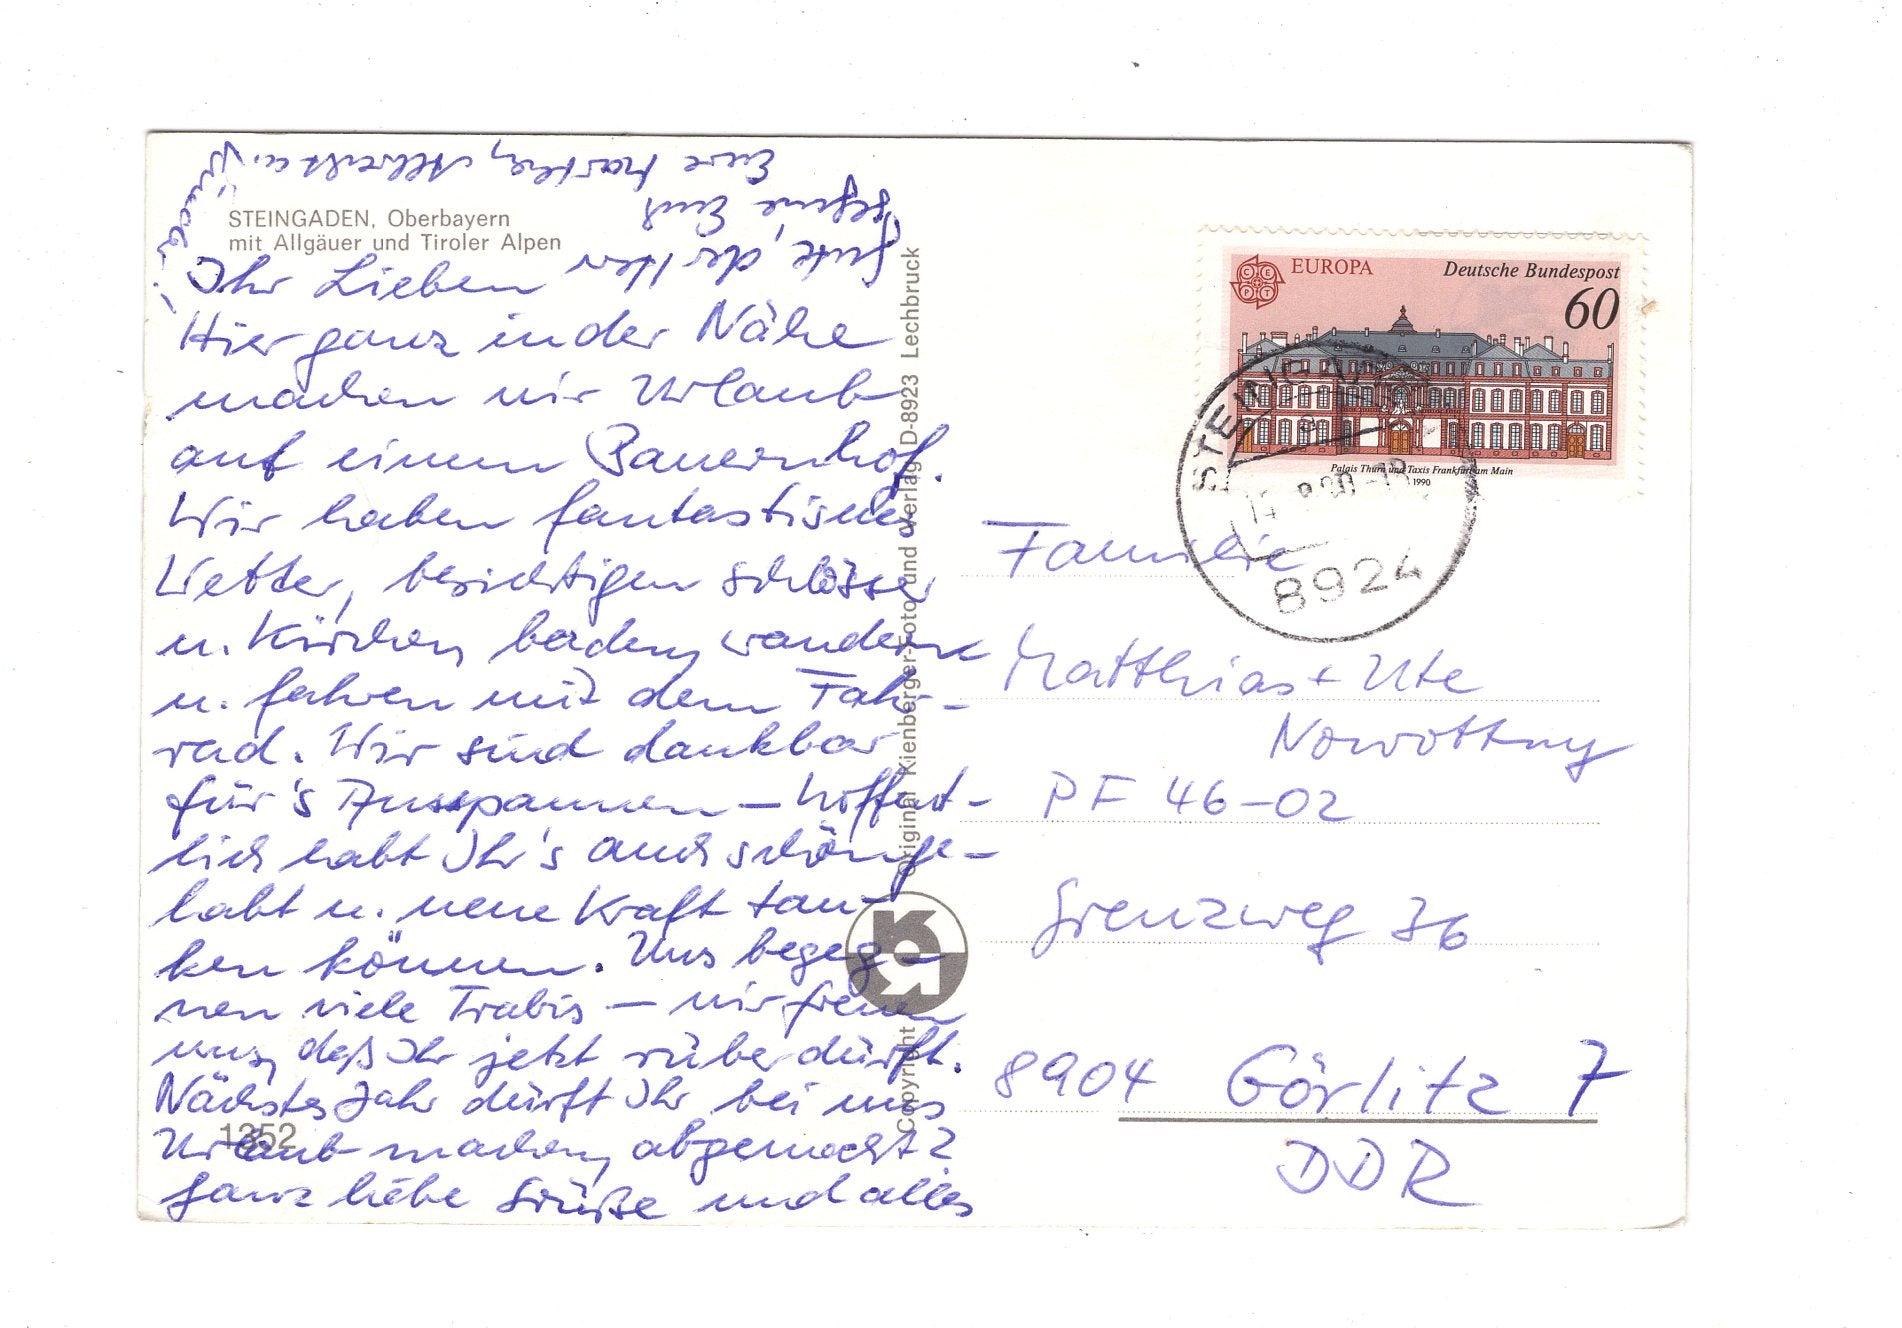 STEINGADEN, Oberbayern
mit Allgäuer und Tiroler Alpen
Ihr Lieben
Hier ganz in der Nähe
machen wir Urlaub
auf einem Bauernhof.
Wir haben fantastisches
Wetter, besichtigen Schlösser
u. Kirchen, baden, wandern
u. fahren mit dem Fahr-
rad. Wir sind dankbar
für's Ausspannen – hoffent-
lich habt Ihr's auch schön ge-
habt u. neue Kraft tan-
ken können. Uns begeg-
nen viele Trabis – wir freuen
uns, daß Ihr jetzt rüber dürft.
Nächstes Jahr dürft Ihr bei uns
Urlaub machen, abgemacht?
Ganz liebe Grüße und alles
Gute, der Herr
segne Euch
Eure Martha, Albrecht u.
1352
Copyright Original Kienberger-Foto und Verlag D-8923 Lechbruck
EUROPA
CEPT
Deutsche Bundespost
60
Palais Thurn und Taxis Frankfurt am Main
1990
STEINGADEN
8924
Familie
Matthias + Ute
Nowottny
PF 46-02
Grenzweg 36
8904 Görlitz 7
DDR